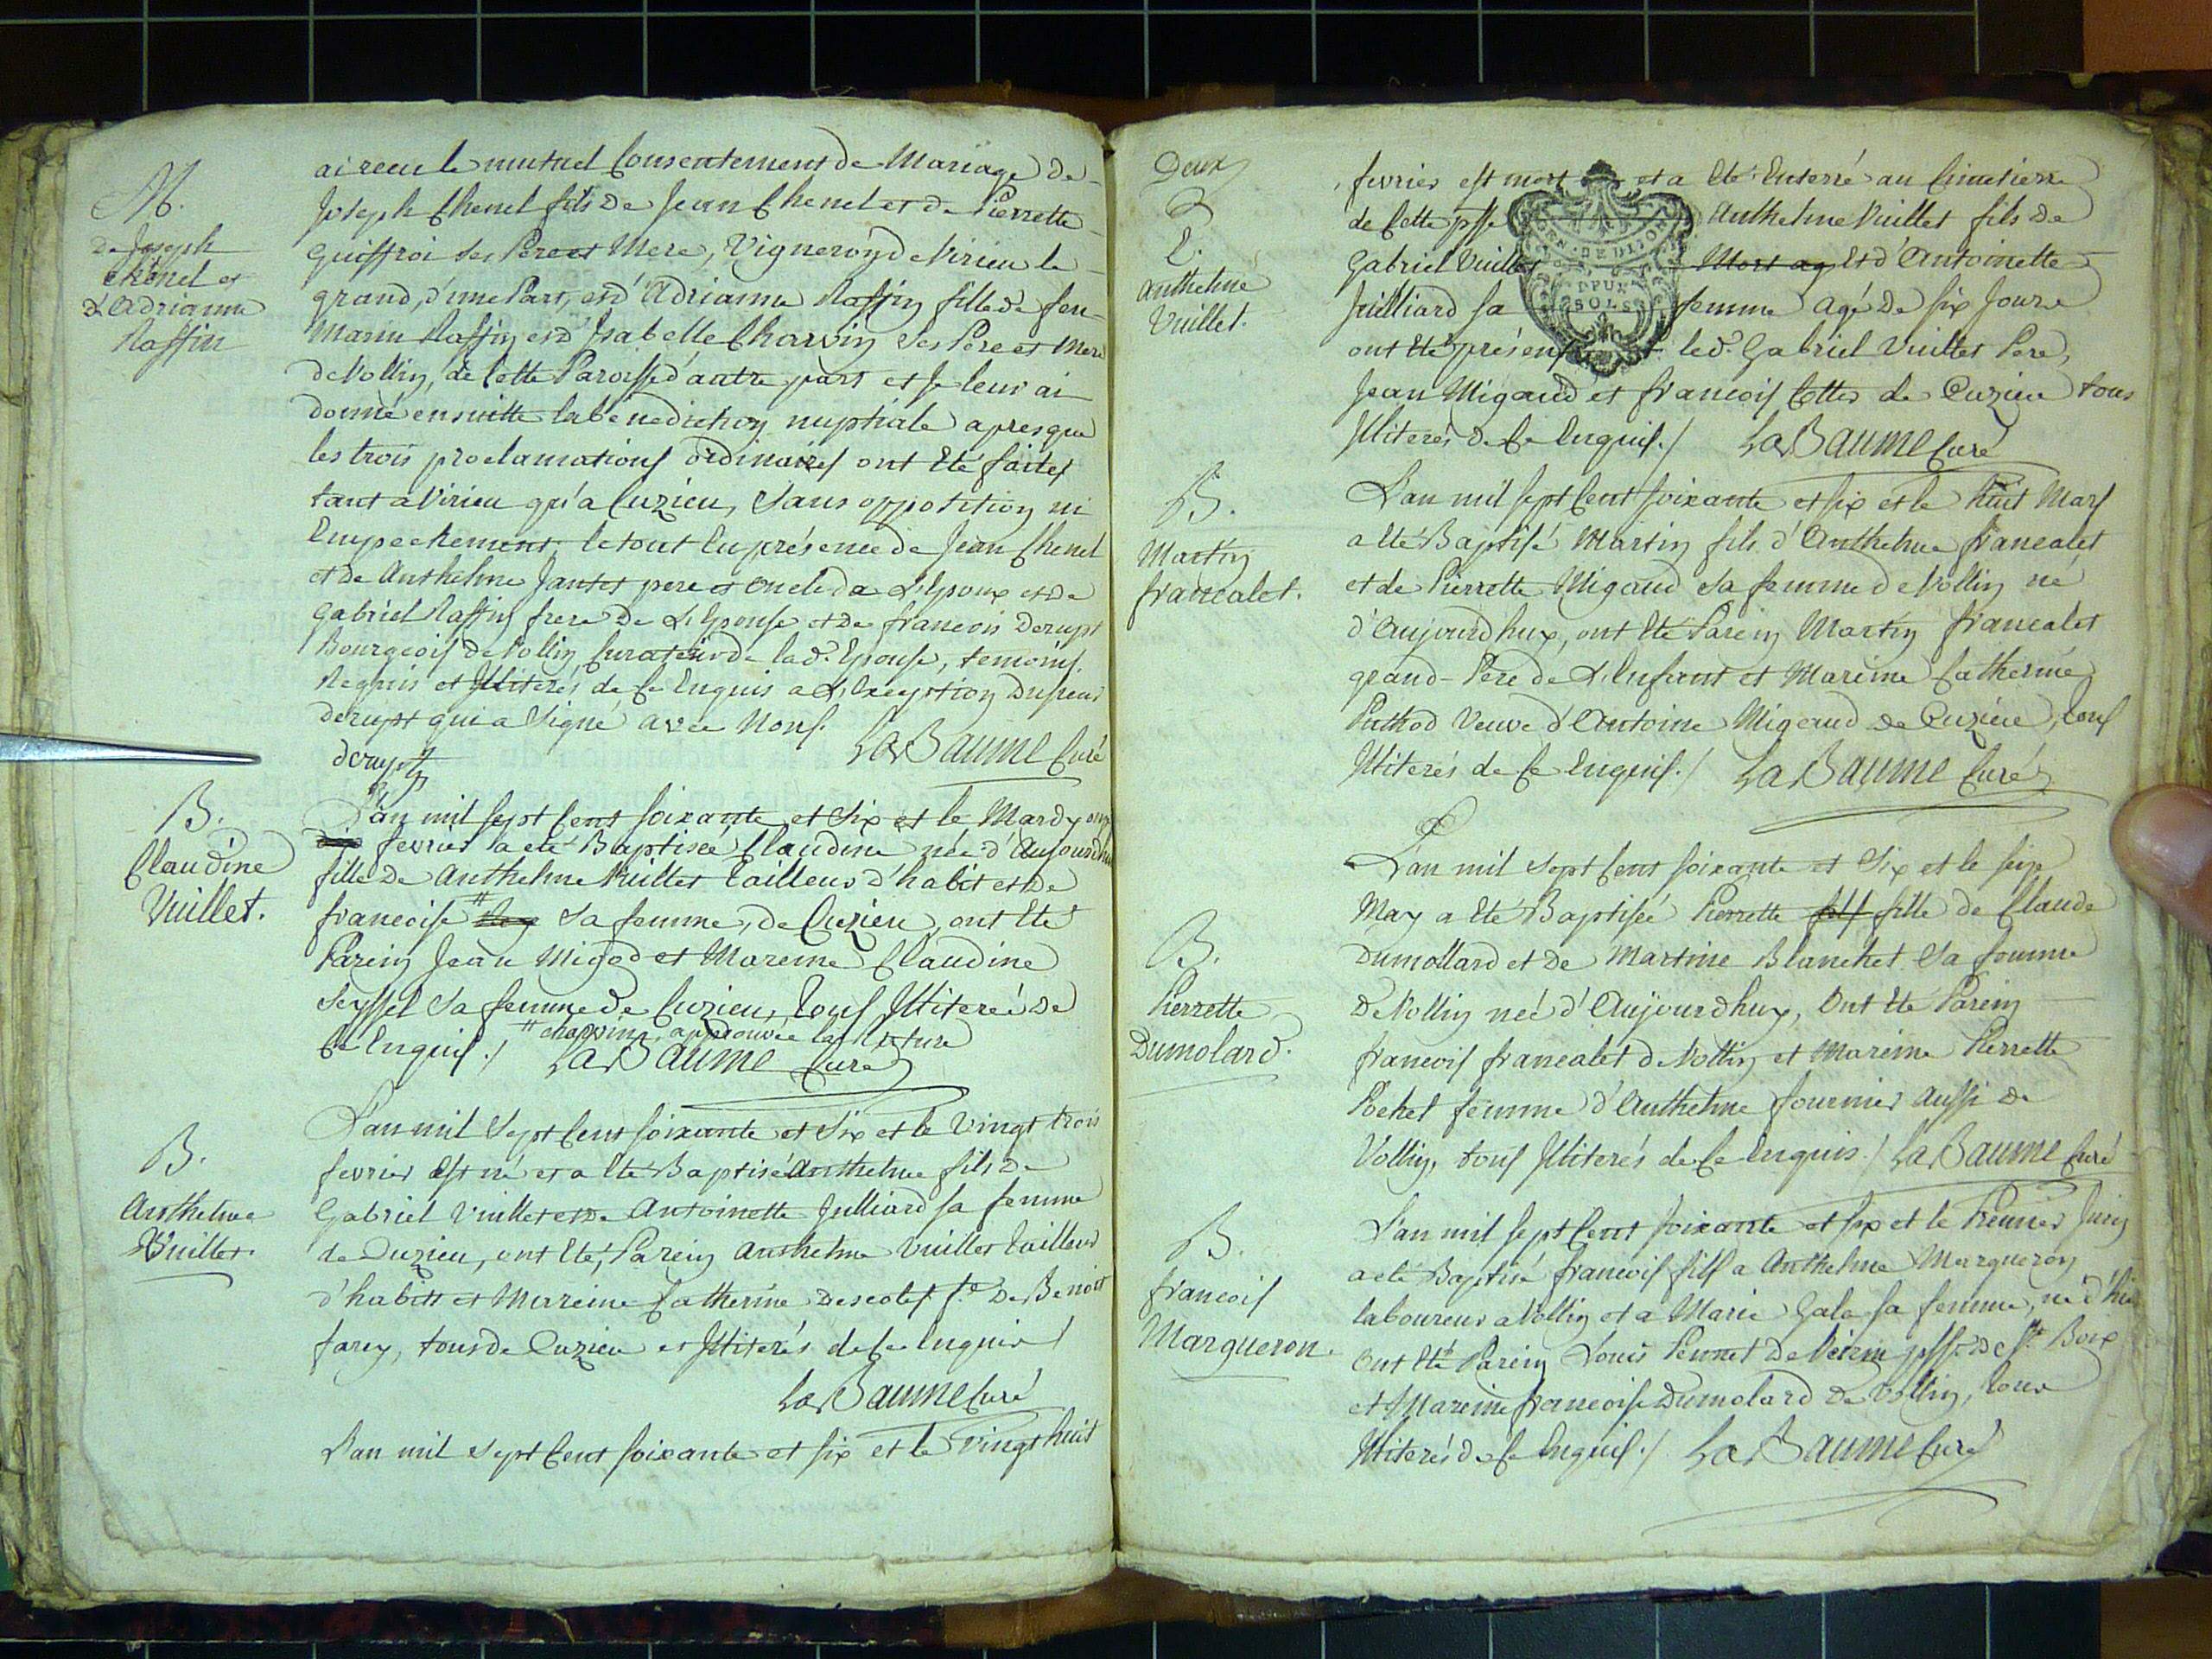 M.
De Joseph
Chenel et
d'Adrianne
Raffin
ai receu le mutuel Consentement de Mariage de
Joseph Chenel fils de Jean Chenel et de Pierrette
Guiffroi ses Pere et Mere, Vigneron de Virieu le
grand, d'une Part, et d'Adrianne Raffin fille de feu
Marin Raffin et d'Isabelle Charvin ses Pere et Mere
de Vollin, de Cette Paroisse d'autre part et Je leur ai
donné ensuitte la bénédiction nuptiale apres que
les trois proclamations ordinaires ont Eté faites
tant a Virieu qu'a Cuzieu, Sans opposition ni
Empechement, le tout En présence de Jean Chenel
et de Anthelme Jantet pere et oncle de L'Epoux et de
Gabriel Raffin frere de L'Epouse et de francois Derupt
Bourgeois de Vollin Curateur de lad. Epouse, temoins.
Requis et Illiterés de Ce Enquis a L'Exception Du sieur
derupt qui a Signé avec Nous. La Baume Curé
derupt
B.
Claudine
Vuillet.
L'an mil sept Cent soixante et Six et le Mardy onze
fevrier a eté Baptiseé Claudine neé d'Aujourdhu
fille de Anthelme Vuillet tailleur d'habit et de
francoise # sa femme, de Cuzieu, ont Eté
Parein Jean Migod et Mareine Claudine
Seyssel Sa femme de Cuzieu, tous Illiteré de
Ce Enquis./ # approuvée la rature
La Baume Curé
B.
Anthelme
Vuillet.
L'an mil Sept Cent soixante et Six et le Vingt trois
fevrier Est né et a Eté Baptisé Anthelme fils de
Gabriel Vuillet et de Antoinette Julliard sa femme
de Cuzieu, ont Eté, Parein Anthelme Vuillet tailleur
d'habits et Mareine Catherine Descotes fe. De Benoit
farcy, tous de Cuzieu et Illiterés de Ce Enquis
La Baume Curé
L'an mil Sept Cent soixante et six et le vingt huit
Deux
E.
Anthelme
Vuillet.
fevrier est mort et a Eté Enterré au Cimetierre
de Cette psse Anthelme Vuillet fils de
Gabriel Vuillet Mort ag Et d'Antoinette
Julliard sa femme agé De six Jours
ont Eté présens led. Gabriel Vuillet Pere,
Jean Migaud et francois Cottet de Cuzieu tous
Illiterés de Ce Enquis./ La Baume Curé
GEN. DE DIJON
DEUX
SOLS
B.
Martin
francalet.
L'an mil sept Cent soixante et six et le huit Mars
a Eté Baptisé Martin fils d'Anthelme francalet
et de Pierrette Migaud sa femme de Vollin né
d'Aujourdhux, ont Eté Parein Martin francalet
grand-Pere de L'Enfant et Mareine Catherine
Puthod Veuve d'Antoine Migaud de Cuzieu, tous
Illiterés de Ce Enquis./ La Baume Curé
B.
Pierrette
Dumolard.
L'an mil sept Cent soixante et Six et le six
May a Eté Baptisée Pierrette fils fille de Claude
Dumollard et de Martine Blanchet Sa femme
De Vollin neé d'Aujourdhux, Ont Eté Parein
francois francalet de Vollin et Mareine Pierrette
Pochet femme d'Anthelme fournier aussi de
Vollin, tous Illiterés de Ce Enquis./ La Baume Curé
B.
francois
Margueron.
L'an mil sept Cent soixante et six et le Premier Juin
a eté Baptisé francois fils a Anthelme Margueron
laboureur a Vollin et a Marie Gala sa femme, né d'hier
Ont Eté Parein Louis Pennet de psse. De St. Bois
et Mareine francoise Dumolard de Vollin, tous
Illiterés de Ce Enquis./ La Baume Curé